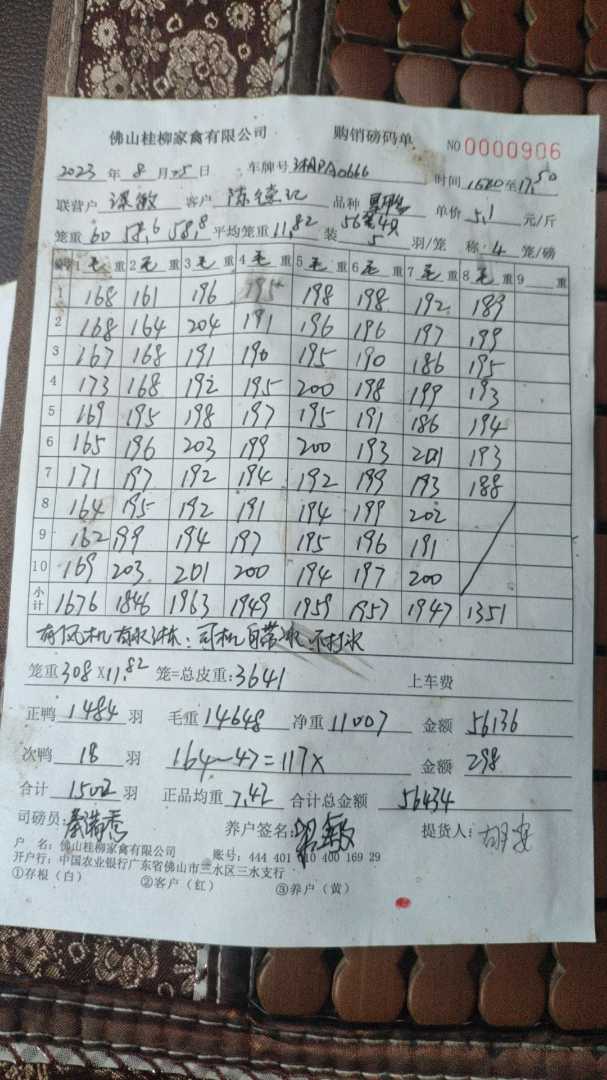 佛山桂柳家禽有限公司 购销磅码单 NO 0000906
2023 年 8 月 25 日 车牌号 时间 1620 至 17:50
联营户 客户 陈德记 品种 单价 5.1 元/斤
笼重 60 58.6 58.8 平均笼重 11.82 装 5 羽/笼 称 4 笼/磅
编号 1 毛 重 2 毛 重 3 毛 重 4 毛 重 5 毛 重 6 毛 重 7 毛 重 8 毛 重 9 重
1 168 161 196 195 198 198 192 189
2 168 164 204 191 196 196 197 199
3 167 168 191 190 195 190 186 195
4 173 168 192 195 200 198 199 193
5 169 195 198 197 195 191 186 194
6 165 196 203 199 200 193 201 193
7 171 197 192 194 192 199 193 188
8 164 195 192 191 194 199 202
9 162 199 194 197 195 196 191
10 169 203 201 200 194 197 200
小计 1676 1846 1963 1949 1959 1957 1947 1351
有风机有水淋：司机自带冰 不打水
笼重 308 X 11.82 笼=总皮重：3641 上车费
正鸭 1484 羽 毛重 14648 净重 11007 金额 56136
次鸭 18 羽 164-47=117X 金额 298
合计 1502 羽 正品均重 7.42 合计总金额 56434
司磅员： 养户签名： 提货人：
户 名：佛山桂柳家禽有限公司 账号：444 401 010 400 169 29
开户行：中国农业银行广东省佛山市三水区三水支行
①存根（白） ②客户（红） ③养户（黄）